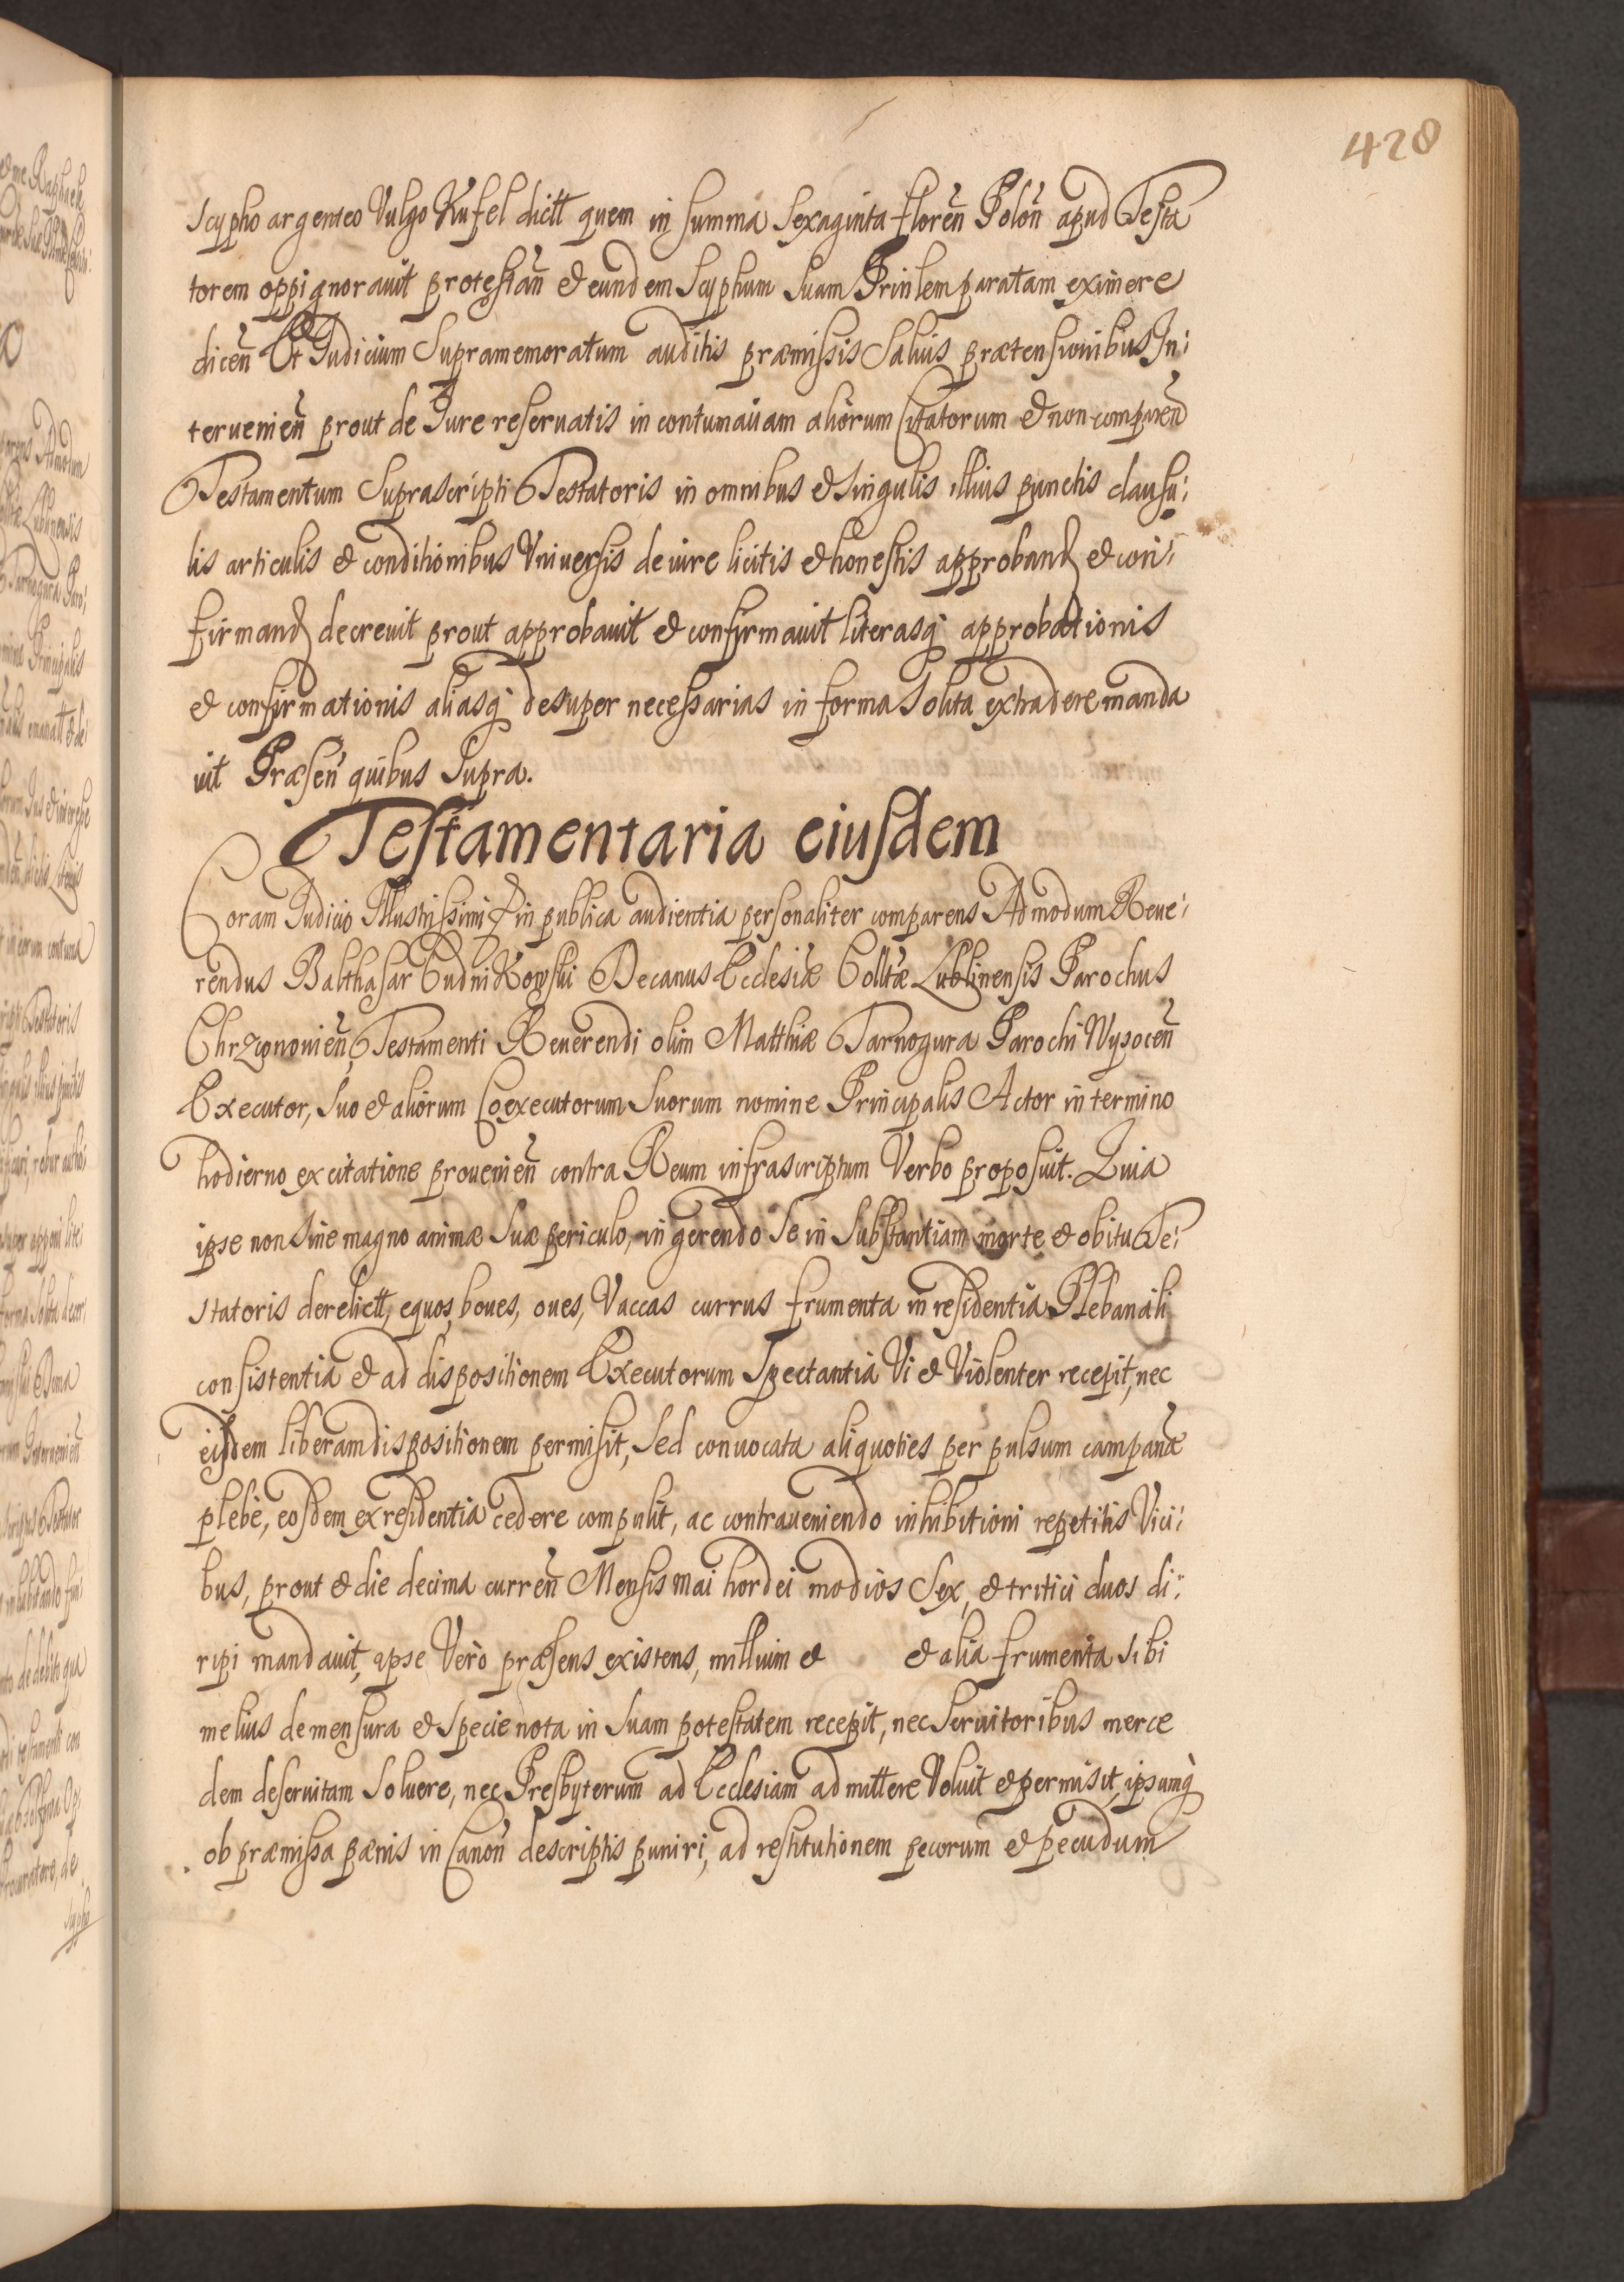 428
Scypho argenteo Vulgo Kufel dictt quem in summa Sexaginta floreñ Poloñ apud Testa
torem oppignorauit protestañ et eundem Scyphum Suam Prinlem paratam eximere
diceñ Et Judicium Supramemoratum auditis præmissis Saluis prætensionibus In:
terueniēn prout de Jure reseruatis in contumatiam aliorum Citatorum et non compareñ
Testamentum Suprascripti Testatoris in omnibus et Singulis illius punctis clausu:
lis articulis et conditionibus Vniuersis de iure licitis et honestis approband et con:
firmand decreuit prout approbauit et confirmauit literasq approbationis
et confirmationis aliasq desuper necessarias in forma Solita extradere manda
uit Præseñ quibus Supra.
Testamentaria eiusdem
Coram Judicio Illustrissimi et in publica audientia personaliter comparens Admodum Reue:
rendus Balthasar Cudnikowski Decanus Ecclesiæ Colltæ Lublinensis Parochus
Chrzonouieñ, Testamenti Reuerendi olim Matthiæ Tarnogura Parochi Wysoceñ
Executor, Suo et aliorum Coexecutorum Suorum nomine Principalis Actor in termino
hodierno ex citatione prouenieñ contra Reum infrascriptum Verbo proposuit. Quia
ipse non Sine magno animæ Suæ periculo, in gerendo Se in Substantiam morte et obitu Te:
statoris derelictt, equos, boues, oues, Vaccas currus frumenta in residentia Plebanali
consistentia et ad dispositionem Executorum Spectantia Vi et Violenter recepit, nec
eisdem liberam dispositionem permisit, Sed conuocata aliquoties per pulsum campanæ
plebe, eosdem ex residentia cedere compulit, ac contraueniendo inhibitioni repetitis Vici:
bus, prout et die decima curreñ Mensis Mai hordei modios Sex, et tritici duos di:
ripi mandauit, ipse Verò præsens existens, millium et et alia frumenta Sibi
melius de mensura et Specie nota in Suam potestatem recepit, nec Seruitoribus merce
dem deseruitam Soluere, nec Presbyterum ad Ecclesiam admittere Voluit et permisit, ipsumq
ob præmissa pænis in Canoñ descriptis puniri, ad restitutionem pecorum et pecudum